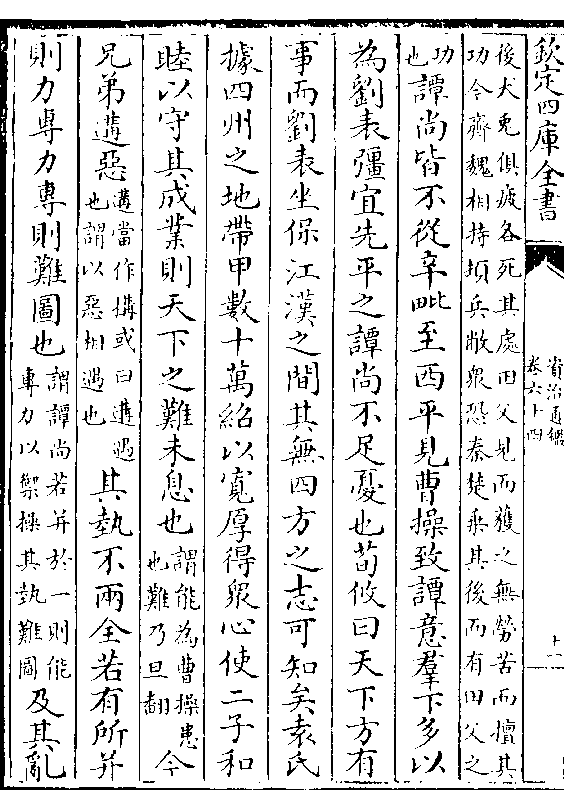 欽定四庫全書
資治通鑑
卷六十四
十一
後犬兔俱疲各死其處田父見而獲之無勞苦而擅其
功今齊魏相持頓兵敝衆恐秦楚乗其後而有田父之
功也譚尚皆不從辛毗至西平見曹操致譚意羣下多以
為劉表彊宜先平之譚尚不足憂也荀攸曰天下方有
事而劉表坐保江漢之間其無四方之志可知矣袁氏
據四州之地帶甲數十萬紹以寛厚得衆心使二子和
睦以守其成業則天下之難未息也謂能為曹操患也難乃旦翻今
兄弟遘惡遘當作搆或曰遘遇也謂以惡相遇也其埶不兩全若有所并
則力專力專則難圖也謂譚尚若并於一則能專力以禦操其埶難圖及其亂